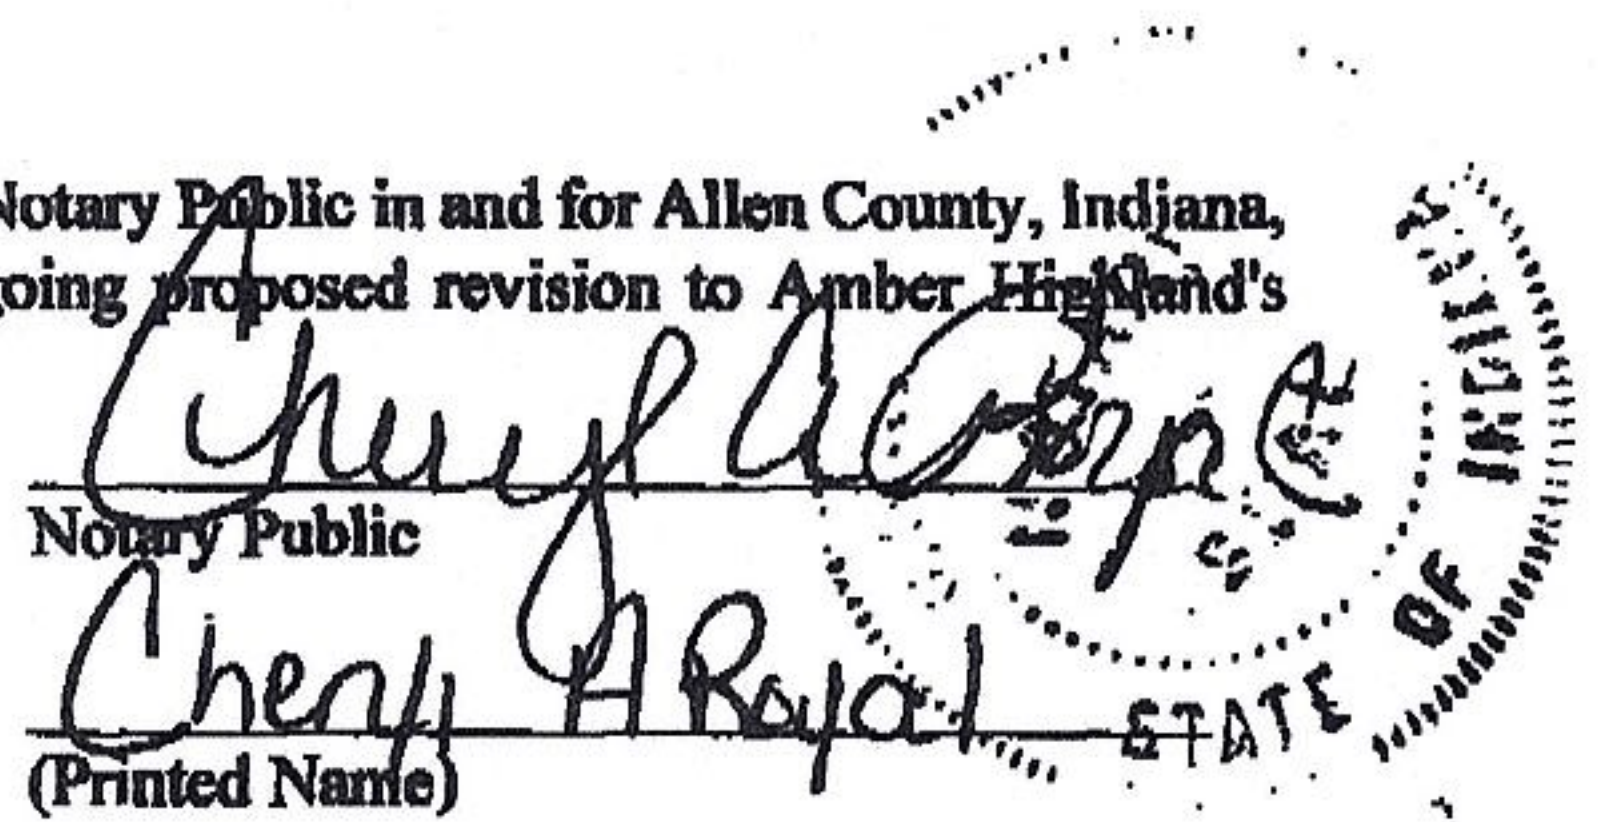 Notary Public in and for Allen County, Indiana,
going proposed revision to Amber Highland's
Cheryl A
Notary Public
Cheryl A Royal
(Printed Name)
STATE OF INDIANA